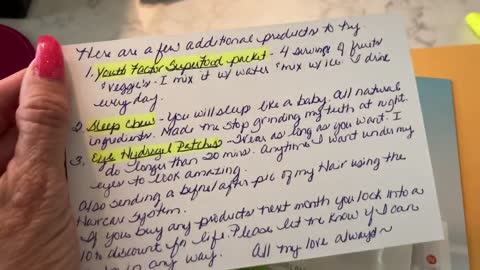 There are a few additional products to try.
1. Youth Factor Superfood packet - 4 servings of fruits
& veggie's - I mix it w/ water & mix w/ ice. I drink
every day.
2. Sleep Chews - You will sleep like a baby. All natural
ingredients. Made me stop grinding my teeth at night.
3. Eye Hydrogel Patches - Wear as long as you want. I
do longer than 20 mins. Anytime I want under my
eyes to look amazing.
Also sending a before/after pic of my Hair using the
Haircare System.
If you buy any products next month you lock into a
10% discount for life. Please let me know if I can
in any way. All my love always~